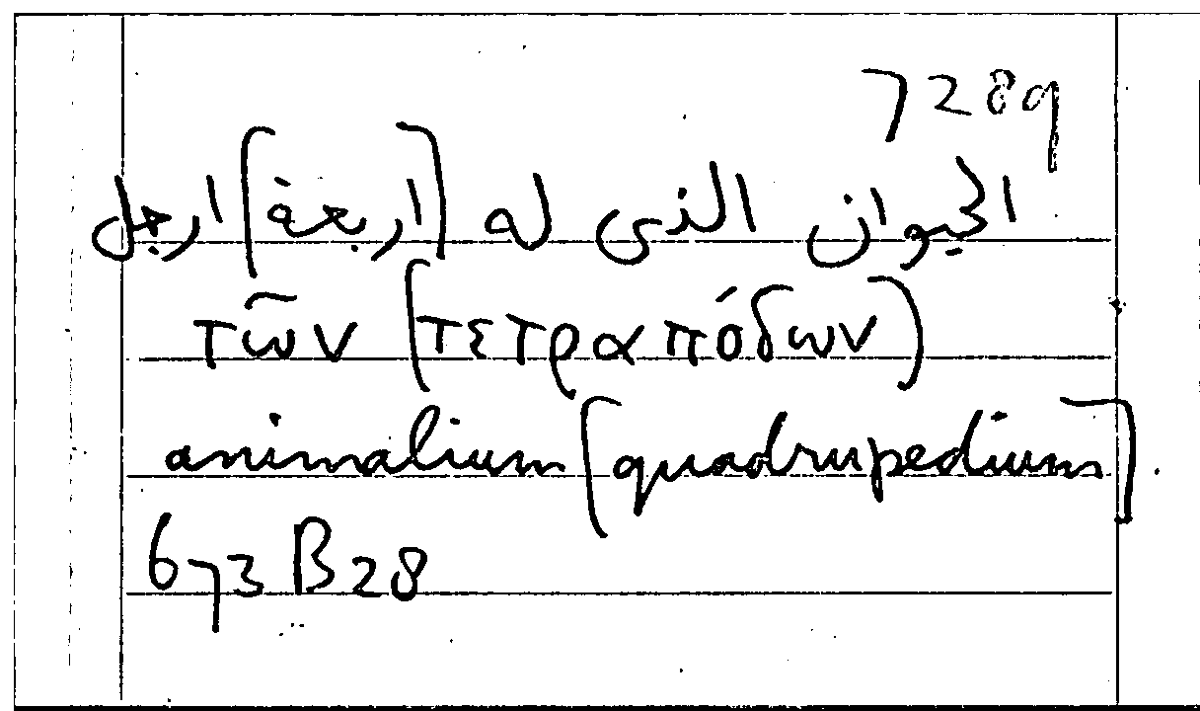 7289
الحيوان الذى له [اربعة] ارجل
τῶν [τετραπόδων]
animalium [quadrupedium].
673 B 28